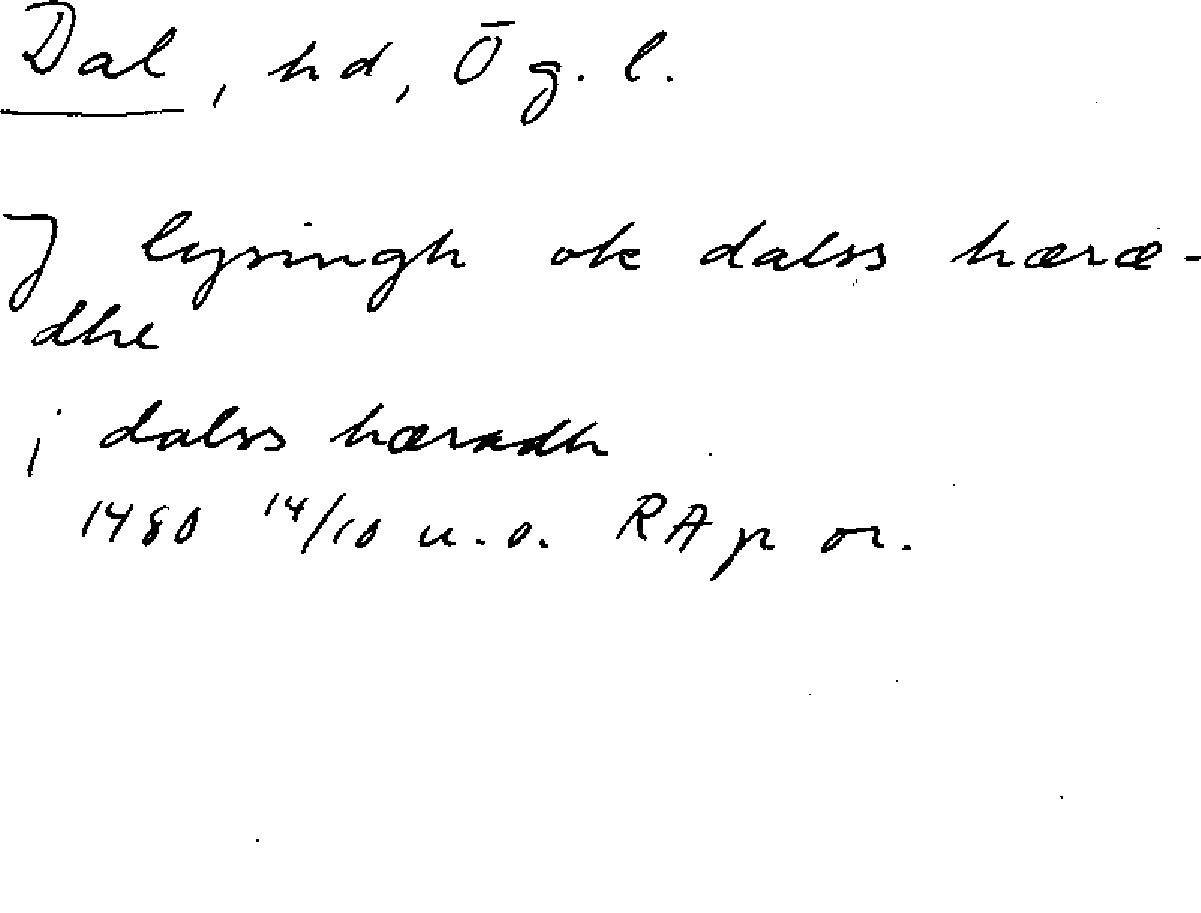 Dal, hd, Ög. l.
J lysingh ok dalss hæræ-
dhe
j dalss hæradh
1480 14/10 u. o. RAp or.